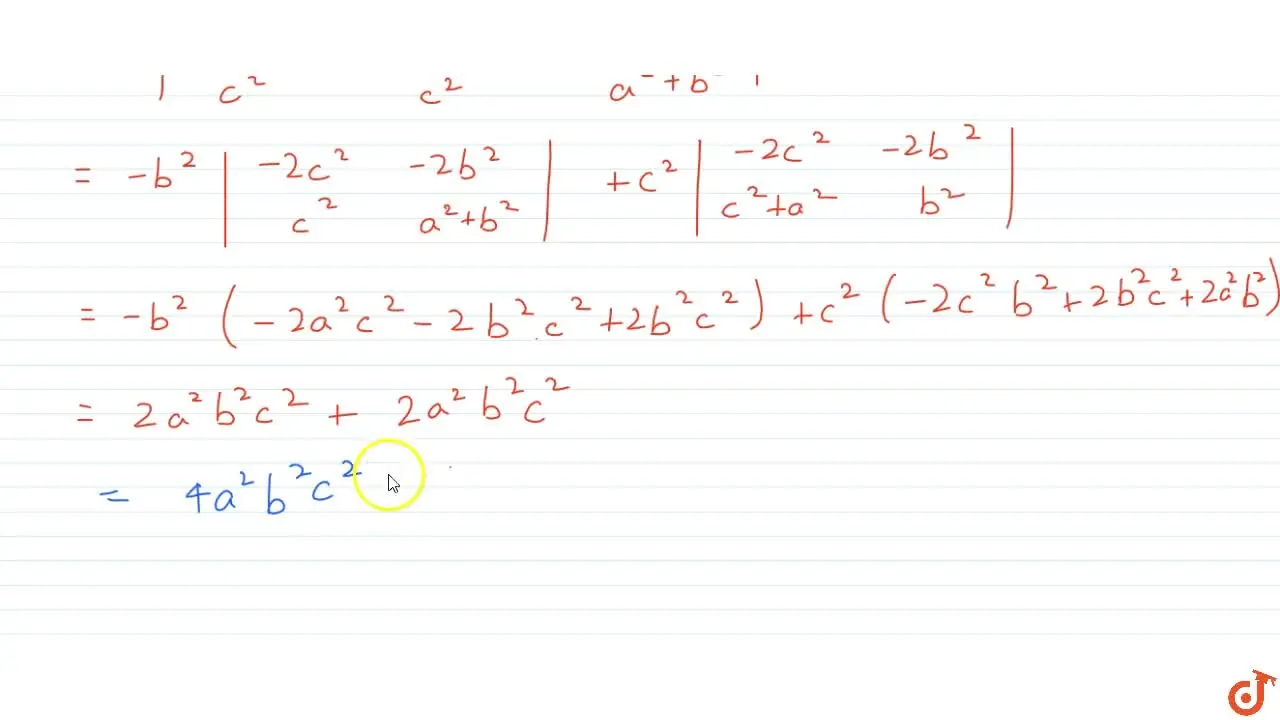 | c² c² a² + b² |
= -b² | -2c² -2b² | + c² | -2c² -2b² |
| c² a² + b² | | c² + a² b² |
= -b² (-2a²c² - 2b²c² + 2b²c²) + c² (-2c²b² + 2b²c² + 2a²b²)
= 2a²b²c² + 2a²b²c²
= 4a²b²c²